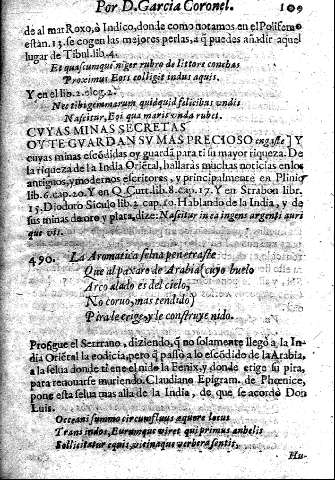 Por D. Garcia Coronel. 109
de al mar Roxo, ò Indico, donde como notamos en el Polifemo
estan. 13. se cogen las mejores perlas, a q̃ puedes añadir aquel
lugar de Tibul. lib. 4.
Et quascumque niger rubro de littore conchas
Proximus Eois colligit indus aquis.
Y en el lib. 2. eleg. 2.
Nec tibi gemmarum quidquid felicibus undis
Nascitur, Eoi qua maris unda rubet.
CVYAS MINAS SECRETAS
OY TE GVARDAN SV MAS PRECIOSO engaste] Y
cuyas minas escõdidas oy guardã para ti su mayor riqueza. De
la riqueza de la India Oriẽtal, hallarás muchas noticias en los
antiguos, y modernos escritores, y principalmente en Plinio
lib. 6. cap. 20. Y en Q. Curt. lib. 8. cap. 17. Y en Strabon libr.
15. Diodoro Siculo lib. 2. cap. 10. Hablando de la India, y de
sus minas de oro y plata, dize: Nascitur in ea ingens argenti auri
que vis.
490. La Aromatica selua penetraste
Que al paxaro de Arabia (cuyo buelo
Arco alado es del cielo,
No coruo, mas tendido)
Pira le erige, y le construye nido.
Prosigue el Serrano, diziendo, q̃ no solamente llegò a la In-
dia Oriẽtal la codicia, pero q̃ passò a lo escõdido de la Arabia,
a la selua donde tiene el nido la Fenix, y donde erige su pira,
para renouarse muriendo. Claudiano Epigram. de Phœnice,
pone esta selua mas alla de la India, de que se acordò Don
Luis.
Oceani summo circumfluus æquore lucus
Trans indos, Eurumque viret qui primus anhelis
Sollicitatur equis, vicinaque verbera sentit,
Hu-